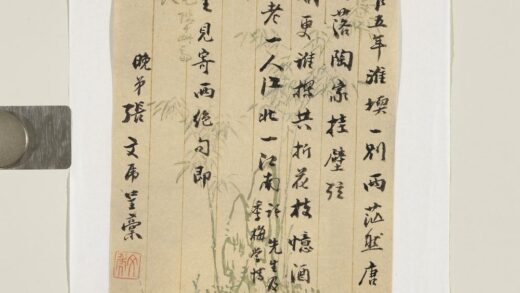 五年淮堧一別兩茫然唐
落陶家挂壁弦
更誰共折花枝憶酒
老一人江北一江南 先生及
季梅學博
見寄兩絕句即
晚弟張文虎呈稾